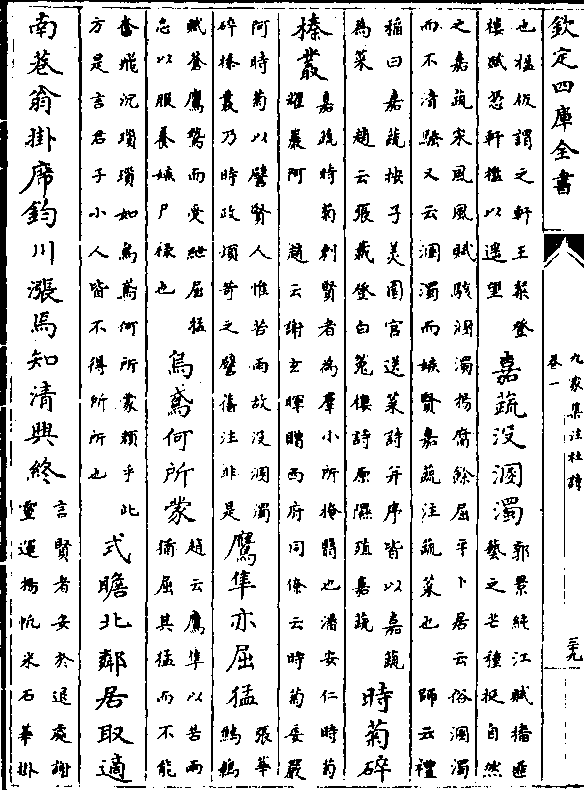 欽定四庫全書
九家集注杜詩
卷一
三十九
也楹板謂之軒王粲登
樓賦憑軒檻以遥望
嘉蔬没溷濁
郭景純江賦播匪
藝之芒種挺自然
之嘉蔬宋玉風賦駭溷濁揚腐餘屈平卜居云俗溷濁
而不清騷又云溷濁而嫉賢嘉蔬注蔬菜也　師云禮
稲曰嘉蔬按子美園官送菜詩并序皆以嘉蔬
為菜　趙云張載登白菟樓詩原隰殖嘉蔬
時菊碎
榛叢
嘉蔬時菊刺賢者為羣小所掩翳也潘安仁時菊
耀巖阿　趙云謝玄暉贈西府同僚云時菊委嚴
阿時菊以譬賢人惟苦雨故没溷濁
碎榛叢乃時政煩苛之譬舊注非是
鷹隼亦屈猛
張華
鷦鷯
賦蒼鷹鷙而受紲屈猛
忘以服養嫉尸禄也
烏鳶何所蒙
趙云鷹隼以苦雨
猶屈其猛而不能
奮飛沉瑣瑣如烏鳶何所蒙賴乎此
方是言君子小人皆不得所所也
式瞻北鄰居取適
南巷翁掛席釣川漲焉知清興終
言賢者安於退處謝
靈運揚帆米石華掛